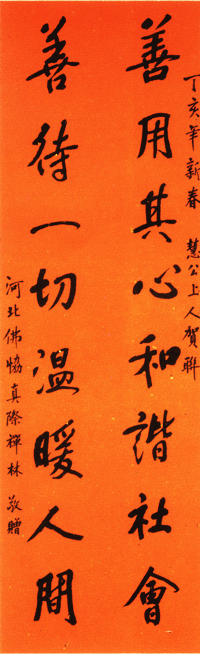 丁亥年新春 慧公上人賀聯
善用其心和諧社會
善待一切溫暖人間
河北佛協真際禪林 敬贈